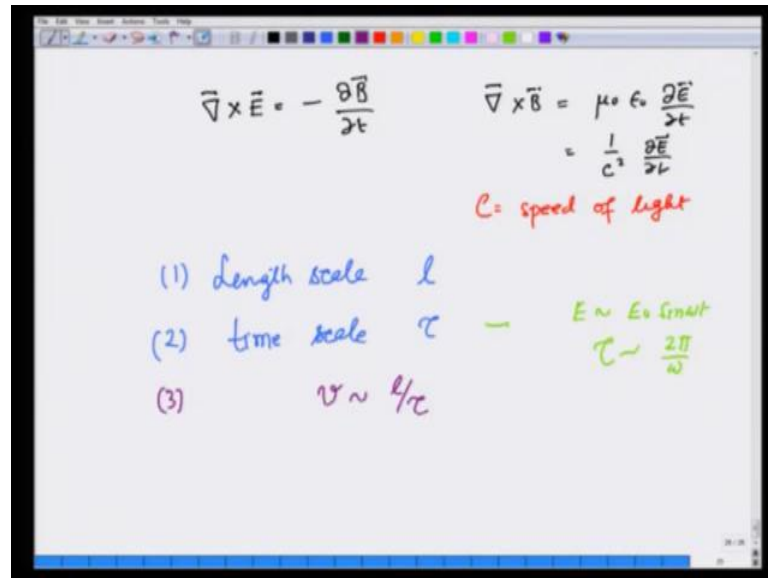 File Edit View Insert Actions Tools Help
∇⃗ × E⃗ = − ∂B⃗/∂t
∇⃗ × B⃗ = μ₀ ε₀ ∂E⃗/∂t
= 1/c² ∂E⃗/∂t
C = speed of light
(1) Length scale l
(2) time scale τ — E ~ E₀ sinωt
τ ~ 2π/ω
(3) v ~ l/τ